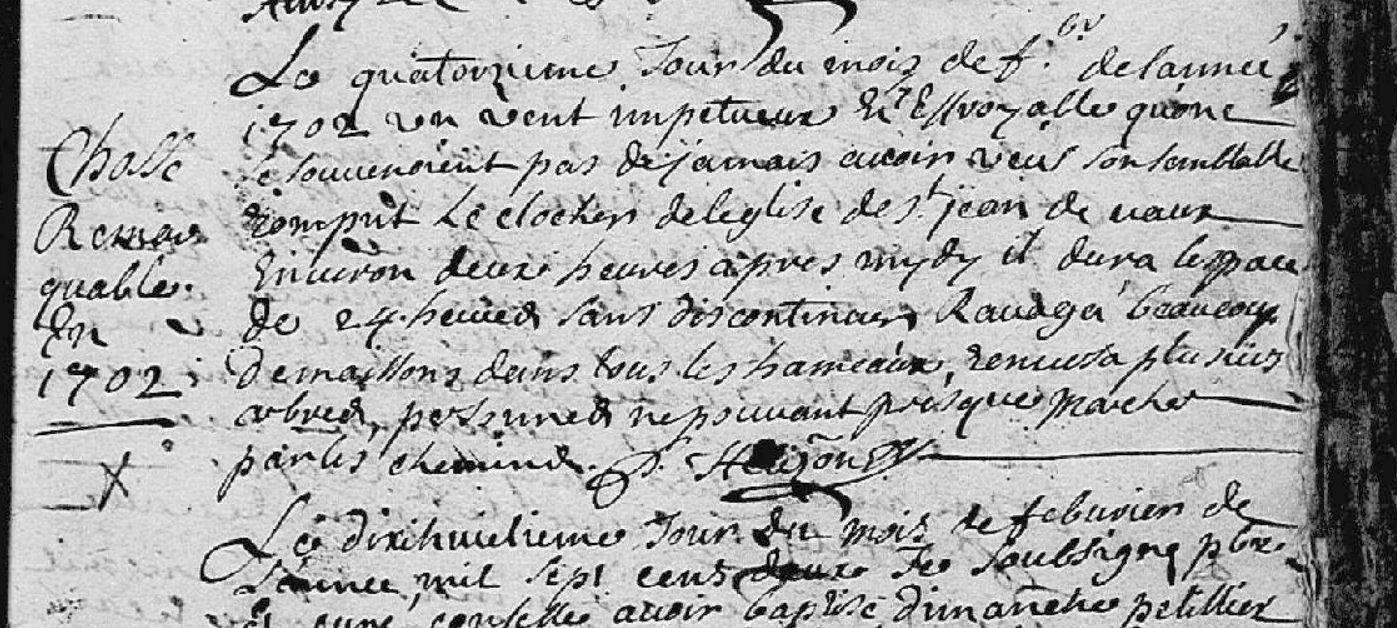 Chosse
Remar
quable.
En
1702
X
Le quatorzieme Jour du mois de f.bv de lannee
1702 un vent impetueux Et Effroyable quone
se souvenoient pas de jamais avoir veus son semblable
rompit Le clocher deleglise de st jean de vaux
Environ deux heures apres mydy il dura lespace
de 24 heured sans discontinuer Ravagea beaucoup
demaissons dans tous les hameaux, renversa plusieurs
arbred, personned nepouvant presque marcher
par les chemind.
Le dixihuictieme Jour Du mois de febvrier de
Lannee mil sept cens deux Je soubsigne pbre
Et curé confesse avoir baptisé dimanche petillier